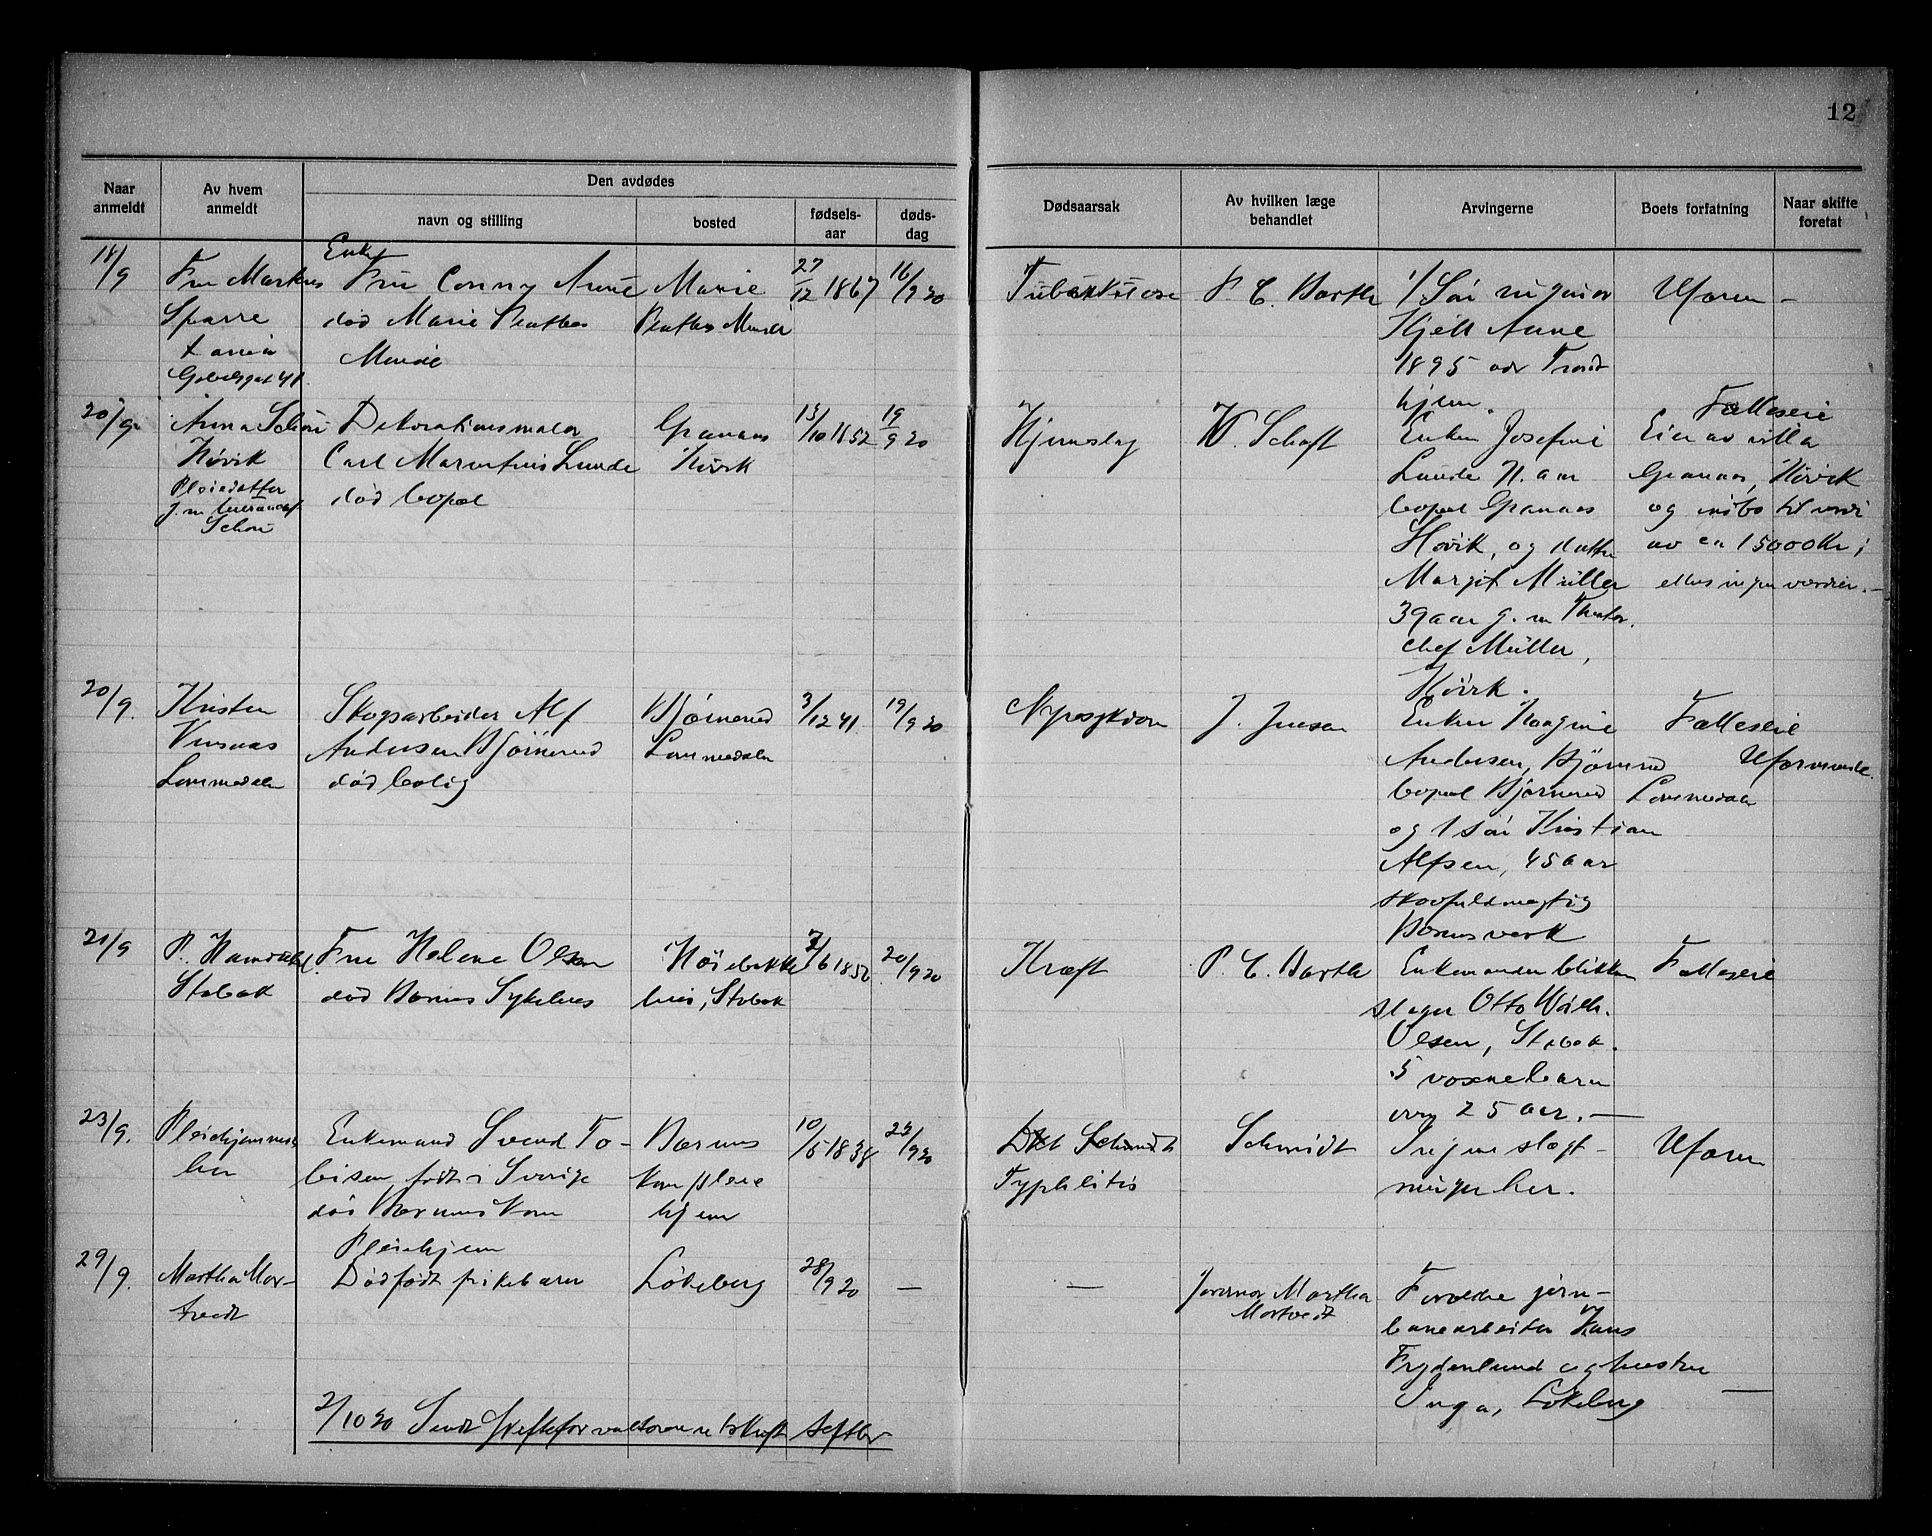 12
Naar anmeldt
Av hvem anmeldt
Den avdødes
navn og stilling
bosted
fødsels-aar
døds-dag
Dødsaarsak
Av hvilken læge behandlet
Arvingerne
Boets forfatning
Naar skifte foretat
18/9
Fru Markus
Sparre
Enke
Fru Conny Aune
død Marie Plathes
Minde
Marie
Plathes Minde
27/12 1867
16/9 20
Tuberkulose
P. C. Barth
1/ Søn
Kjell Aune
1895 adr Trond
hjem.
Uformu -
20/9
Anna Schou
Høvik
Pleiedatter
Schou
Dekorationsmaler
Carl Martinius Lunde
død bopæl
Granaas
Høvik
13/10 1852
19/9 20
Hjerneslag
W. Scheft
Enken Josefine
Lunde
bopæl Granaas
Høvik, og datter
Margit Müller
39 aar g. m Theater
chef Müller,
Høvik.
Fælleseie
Eier av villa
Granaas, Høvik
og indbo til verdi
av ca 15000 Kr;
ellers ingen værdier. -
20/9.
Kristen
Lommedalen
Skogsarbeider Alf
Andersen Bjørnerud
død bolig
Bjørnerud
Lommedalen
3/12 41
19/9 20
J. Jensen
Enken
Andersen, Bjørnerud
bopæl Bjørnerud Lommedalen
og 1 søn Kristian
Alfsen, 45 aar
skovfuldmægtig
Bærums verk
Fælleseie
Uformuende.
21/9
P.
Stabæk
Fru Helene Olsen
død Bærums Sykehus
Høiebakke
hus, Stabæk
20/9 20
Kræft
P. C. Barth
Enkemanden blikken
slager Otto Wilh.
Olsen, Stabæk.
5 voxne barn
over 25 aar. -
Fælleseie
23/9.
Pleiehjemmet
her
Enkemand Svend To-
biesen, født i Sverige
død Bærums Kom
Pleiehjem
Bærums
Kom Pleie
hjem
10/5 1838
22/9 20
Typhlitis
Schmidt
Ingen slegt-
ninger her.
Uformu
29/9.
Martha Mor-
tvedt
Dødfødt pikebarn
Løkeberg
28/9 20
-
-
Jordmor Martha
Mortvedt
Forældre jern-
banearbeider Hans
Frydenlund og hustru
Inga, Løkeberg
-
2/10 20 Sendt Skifteforvalteren utskrift Septbr